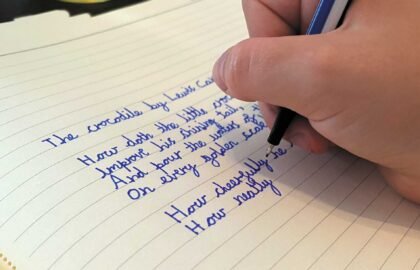 The crocodile by Lewis
How doth the little
Improve his shining tail
And pour the waters of
On every golden
How cheerfully he
How neatly